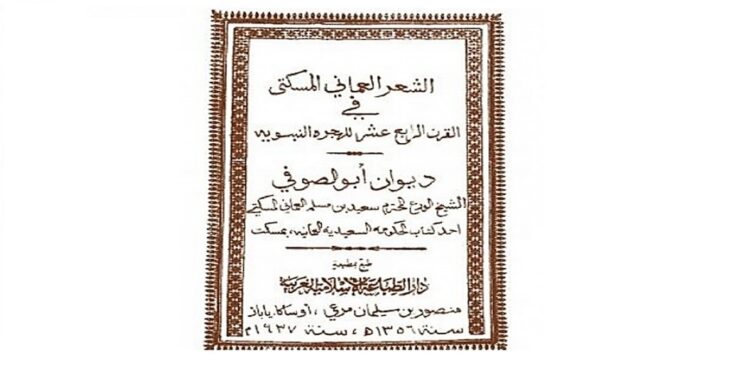 الشعر العماني المسكتي
في
القرن الرابع عشر للهجره النبويه
ديوان أبو الصوفي
الشيخ الورع المحترم سعيد بن مسلم العماني المسكتي
احد كتاب الحكومه السعيديه العمانيه، بمسكت
طبع بمطبعة
دار الطباعة الاسلامية العربية
منصور بن سليمان مرعي، أوساكا، ياباز
سنة ١٣٥٦ه، سنة ١٩٣٧م